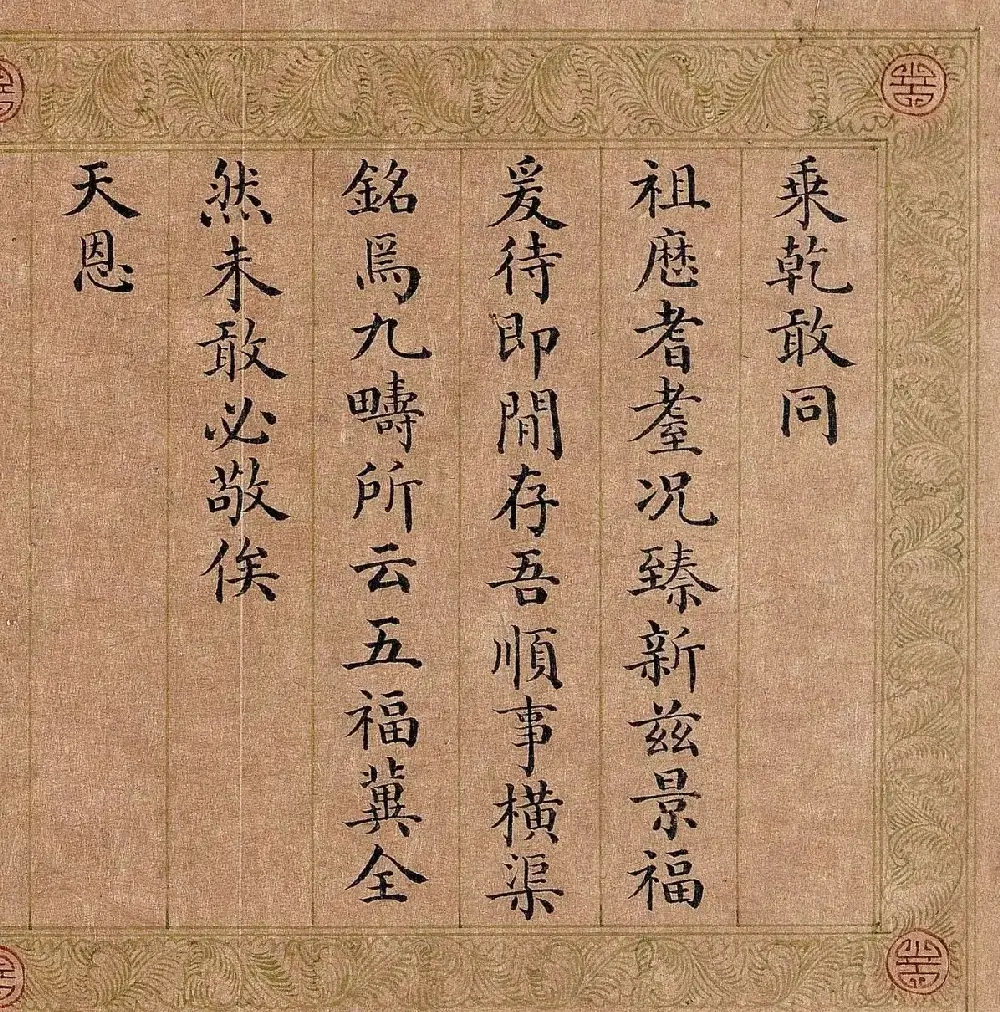 乘乾敢同
祖歷耆耋况臻新兹景福
爰待即閒存吾順事橫渠
銘爲九疇所云五福冀全
然未敢必敬俟
天恩